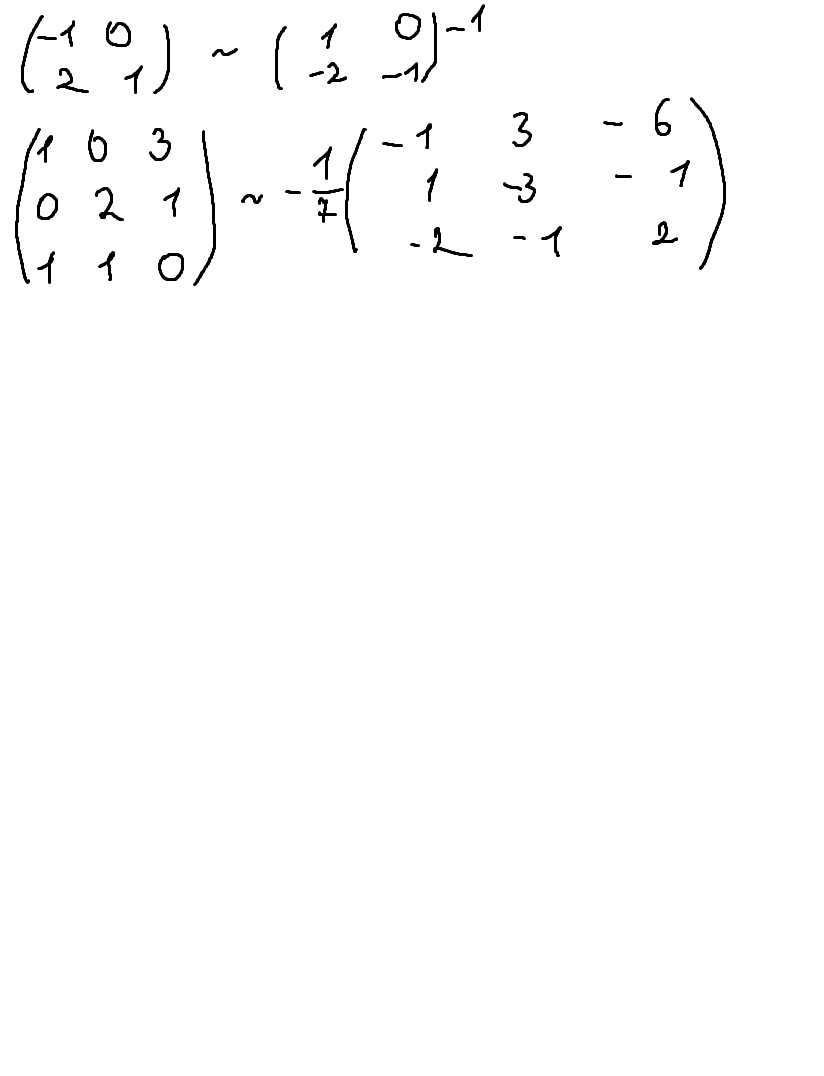 (-1 0 2 1) ~ (1 0 -2 -1)^-1
(1 0 3 0 2 1 1 1 0) ~ -1/7 (-1 3 -6 1 -3 -1 -2 -1 2)